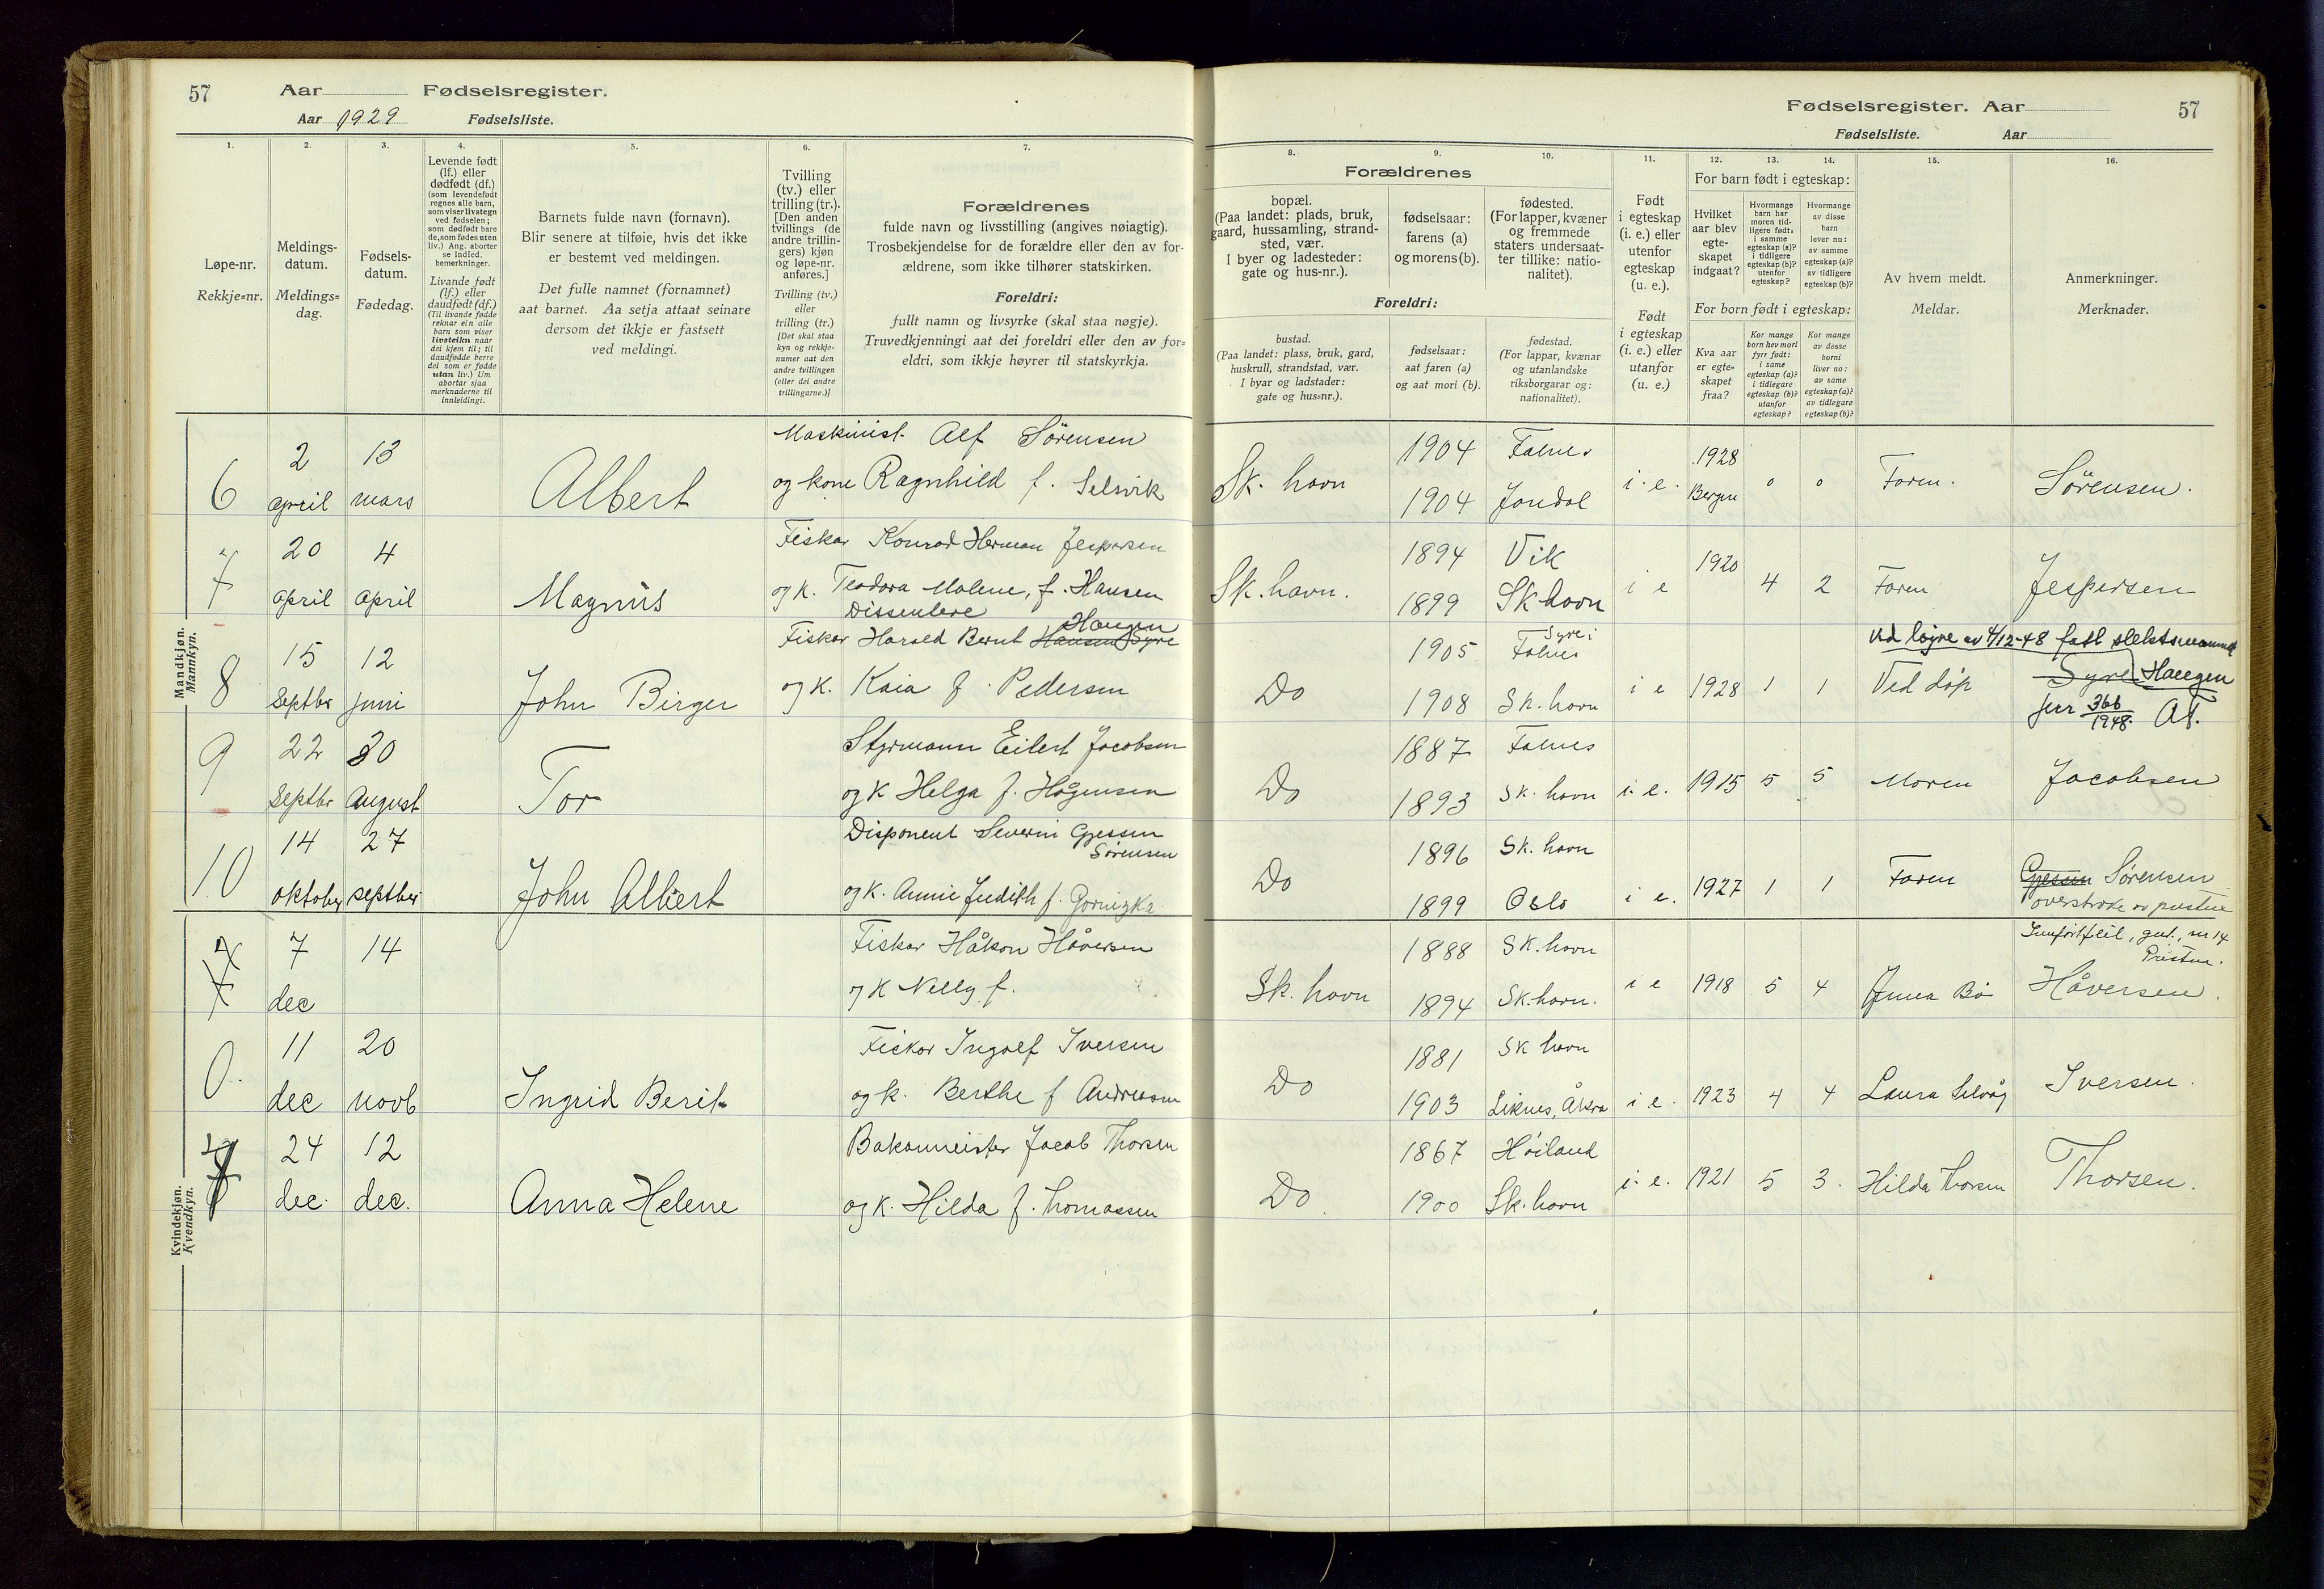 57 Aar Fødselsregister.
Aar 1929 Fødselsliste.
1. 2. 3. 4. 5. 6. 7.
Løpe-nr.
Rekkje=nr.
Meldings-
datum.
Meldings=
dag.
Fødsels-
datum.
Fødedag.
Levende født
(lf.) eller
dødfødt (df.)
(som levendefødt
regnes alle barn,
som viser livstegn
ved fødselen;
som dødfødt bare
de, som fødes uten
liv.) Ang. aborter
se indled.
bemerkninger.
Livande født
(lf.) eller
daudfødt (df.)
(Til livande fødde
reknar ein alle
barn som viser
livsteikn naar
dei kjem til; til
daudfødde berre
dei som er fødde
utan liv.) Um
abortar sjaa
merknaderne til
innleidingi.
Barnets fulde navn (fornavn).
Blir senere at tilføie, hvis det ikke
er bestemt ved meldingen.
Det fulle namnet (fornamnet)
aat barnet. Aa setja attaat seinare
dersom det ikkje er fastsett
ved meldingi.
Tvilling
(tv.) eller
trilling (tr.).
[Den anden
tvillings (de
andre trillin-
gers) kjøn
og løpe-nr.
anføres.]
Tvilling (tv.)
eller
trilling (tr.)
[Det skal staa
kyn og rekkje-
numer aat den
andre tvillingen
(eller dei andre
trillingarne.)]
Forældrenes
fulde navn og livsstilling (angives nøiagtig).
Trosbekjendelse for de forældre eller den av for-
ældrene, som ikke tilhører statskirken.
Foreldri:
fullt namn og livsyrke (skal staa nøgje).
Truvedkjenningi aat dei foreldri eller den av for=
eldri, som ikkje høyrer til statskyrkja.
Mandkjøn.
Mannkyn.
6 2 april 13 mars Albert
Maskinist. Alf Sörensen
og kone Ragnhild f. Selsvik
7 20 april 4 april Magnus
Fisker Konrad Herman Jespersen
og k. Teodora Malene, f. Hansen
Dissentere
8 15 Septbr 12 juni John Birger
Haugen
Fisker Harald Bernt Hansen Syre
og k. Kaia f. Pedersen
9 22 Septbr 30 August Tor
Styrmann Eilert Jacobsen
og k Helga f. Hågensen
10 14 oktober 27 septber John Albert
Disponent Severin Gjessen
Sörensen
og k. Annie Judith f. Gornizka
Kvindekjøn.
Kvendkyn.
7 dec 14
Fisker Håkon Håversen
og k Nelly f.
11 dec 20 novb Ingrid Berit
Fisker Ingolf Iversen
og k. Berthe f Andreasen
24 dec. 12 dec. Anna Helene
Bakermeister Jacob Thorsen
og k. Hilda f. Thomassen
Fødselsregister. Aar 57
Fødselsliste. Aar
8. 9. 10. 11. 12. 13. 14. 15. 16.
Forældrenes
bopæl.
(Paa landet: plads, bruk,
gaard, hussamling, strand-
sted, vær.
I byer og ladesteder:
gate og hus-nr.).
fødselsaar:
farens (a)
og morens (b).
fødested.
(For lapper, kvæner
og fremmede
staters undersaat-
ter tillike: natio-
nalitet).
Foreldri:
bustad.
(Paa landet: plass, bruk, gard,
huskrull, strandstad, vær.
I byar og ladstader:
gate og hus=nr.).
fødselsaar:
aat faren (a)
og aat mori (b).
fødestad.
(For lappar, kvænar
og utanlandske
riksborgarar og:
nationalitet).
Født
i egteskap
(i. e.) eller
utenfor
egteskap
(u. e.).
Født
i egteskap
(i. e.) eller
utanfor
(u. e.)
For barn født i egteskap:
Hvilket
aar blev
egte-
skapet
indgaat?
Hvormange
barn har
moren tid-
ligere født:
i samme
egteskap (a)?
i tidligere
egteskap (b)?
utenfor
egteskap?
Hvormange
av disse
barn
lever nu:
av samme
egteskap (a)?
av tidligere
egteskap (b)?
For born født i egteskap:
Kva aar
er egte=
skapet
fraa?
Kor mange
born hev mori
fyrr født:
i same
egteskap (a)?
i tidlegare
egteskap (b)?
utanfor
egteskap?
Kor mange
av desse
borni
liver no:
av same
egteskap (a)?
av tidlegare
egteskap (b)?
Av hvem meldt.
Meldar.
Anmerkninger.
Merknader.
Sk. havn 1904 Falnes 1904 Jondal i. e. 1928 Bergen 0 0 Faren. Sörensen.
Sk. havn. 1894 Vik 1899 Sk havn i e 1920 4 2 Faren Jespersen
Ved løyve av 4/12-48 fått slektsnamnet
Do 1905 Syre i Falnes 1908 Sk. havn i e 1928 1 1 Ved dåp Syre Haugen
jnr 366/1948. At.
Do 1887 Falnes 1893 Sk. havn i. e. 1915 5 5 Moren Jacobsen
Do 1896 Sk. havn 1899 Oslo i e. 1927 1 1 Faren Gjessen Sørensen
overstrøke av presten
Innført feil, nr 14
Presten.
Sk. havn 1888 Sk. havn 1894 Sk. havn. i e 1918 5 4 Bö Håversen.
Do 1881 Sk havn 1903 Liknes, Åkra i e. 1923 4 4 Laura Selvåg Iversen.
Do 1867 Höiland 1900 Sk. havn i. e. 1921 5 3. Hilda Thorsen Thorsen.